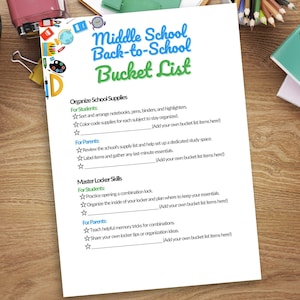 Middle School
Back-to-School
Bucket List
Organize School Supplies
For Students:
☆ Sort and arrange notebooks, pens, binders, and highlighters.
☆ Color-code supplies for each subject to stay organized.
☆ ____________________ (Add your own bucket list items here!)
For Parents:
☆ Review the school's supply list and help set up a dedicated study space.
☆ Label items and gather any last-minute essentials.
☆ ____________________ (Add your own bucket list items here!)
Master Locker Skills
For Students:
☆ Practice opening a combination lock.
☆ Organize the inside of your locker and plan where to keep your essentials.
☆ ____________________ (Add your own bucket list items here!)
For Parents:
☆ Teach helpful memory tricks for combinations.
☆ Share your own locker tips or organization ideas.
☆ ____________________ (Add your own bucket list items here!)